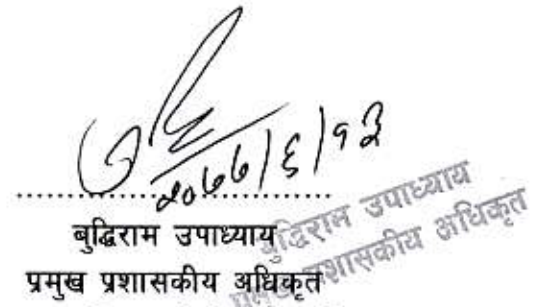 २०७७।६।१३
बुद्धिराम उपाध्याय
प्रमुख प्रशासकीय अधिकृत
बुद्धिराम उपाध्याय
प्रमुख प्रशासकीय अधिकृत